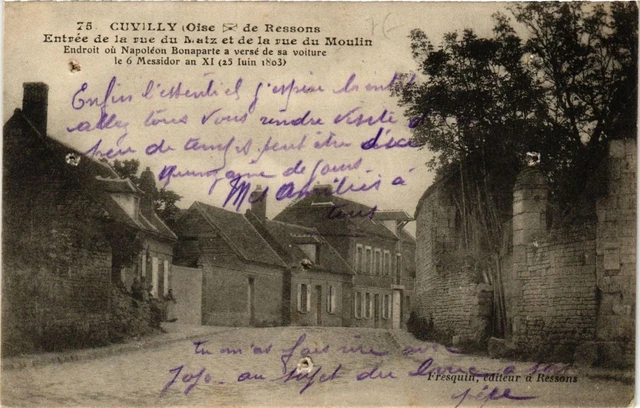 75. CUVILLY (Oise de Ressons
Entrée de la rue du Matz et de la rue du Moulin
Endroit où Napoléon Bonaparte a versé de sa voiture
le 6 Messidor an XI (25 Juin 1803)
Enfin l'essentiel j'espère bientôt
allez tous vous rendre visite
peu de temps peut être d'ici
de jours.
Mes Amitiés à
tous
tu m'as fais rire avec
Jojo. au sujet du
Fresquin, éditeur à Ressons